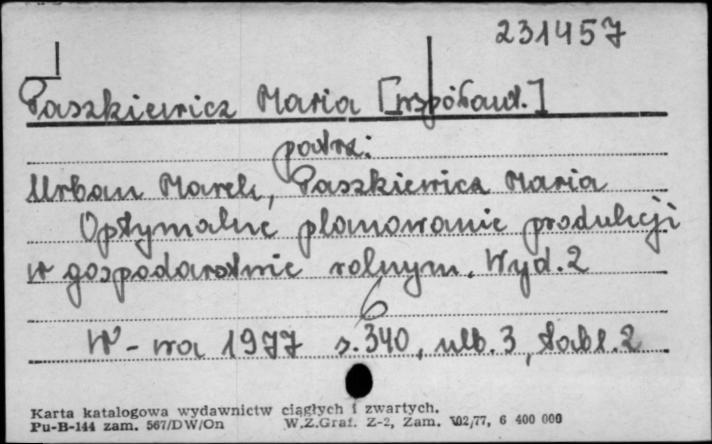 231457
Paszkiewicz Maria [współaut.]
patrz:
Urban Marek, Paszkiewicz Maria
Optymalne planowanie produkcji
w gospodarstwie rolnym. Wyd. 2
6
W-wa 1977 s. 340, nlb. 3, tabl. 2
Karta katalogowa wydawnictw ciągłych i zwartych.
Pu-B-144 zam. 567/DW/On W.Z.Graf. Z-2, Zam. 102/77, 6 400 000